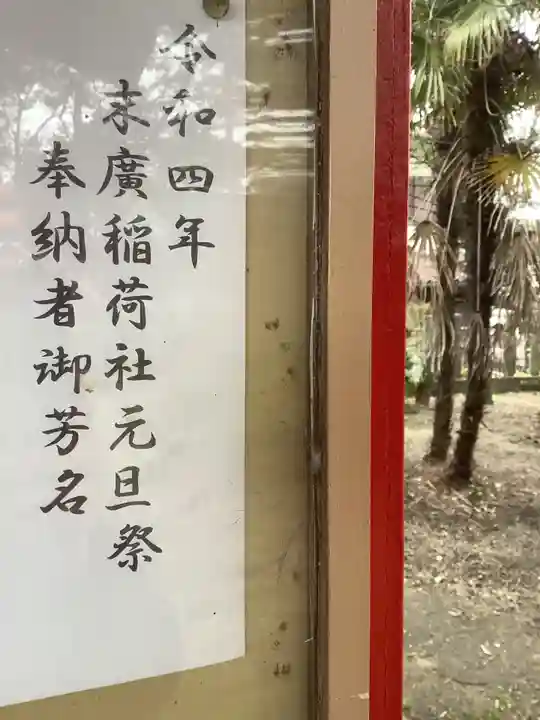 令和四年
末廣稲荷社元旦祭
奉納者御芳名